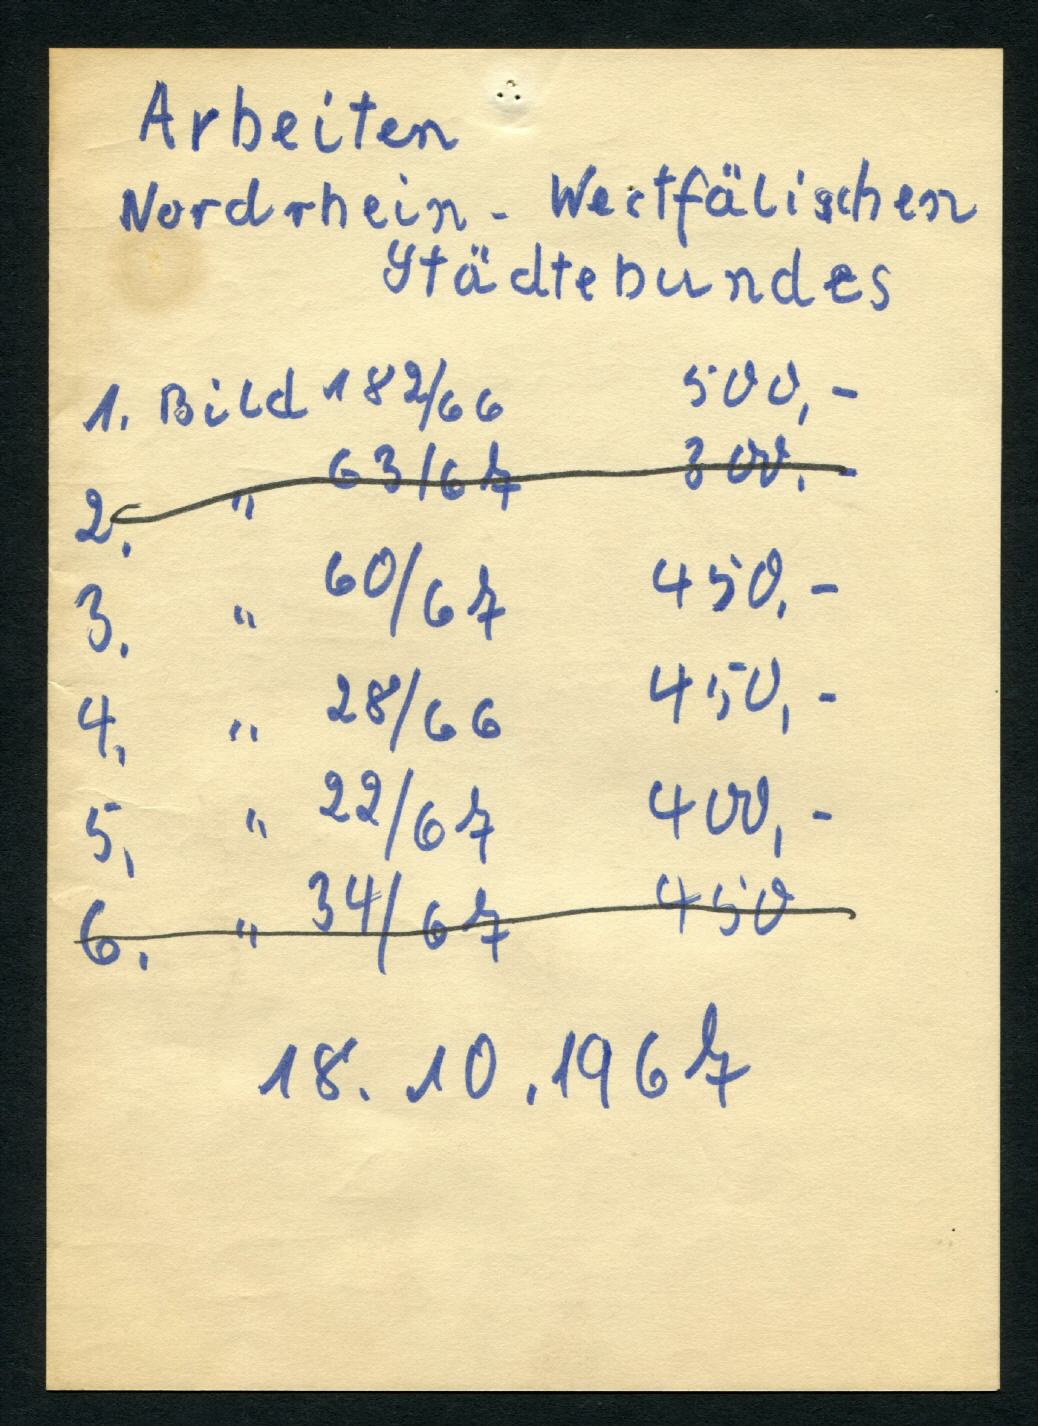 Arbeiten
Nordrhein - Westfälischen
Städtebundes
1. Bild 182/66 500,-
2. " 63/67 300.-
3. " 60/67 450,-
4. " 28/66 450,-
5. " 22/67 400,-
6. " 34/67 450
18.10.1967